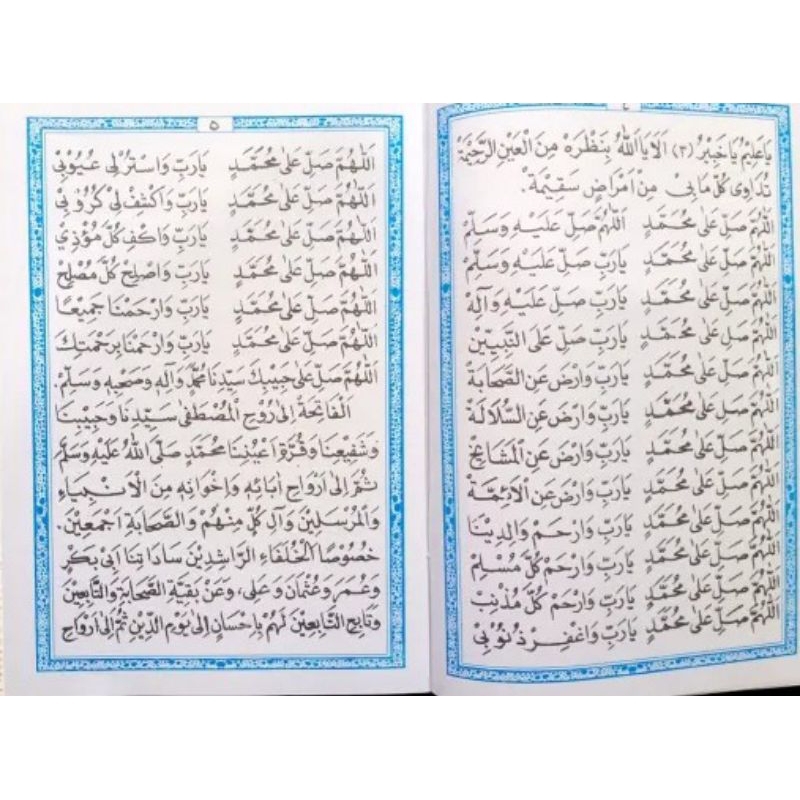 ٤
يَاعَلِيْمُ يَاخَبِيْرُ (٣) اَلَايَا اَللّٰهُ بِنَظْرَهْ مِنَ الْعَيْنِ الرَّحِيْمَةْ
تُدَاوِى كُلَّ مَابِيْ مِنْ اَمْرَاضٍ سَقِيْمَةْ.
اَللّٰهُمَّ صَلِّ عَلىٰ مُحَمَّدٍ اَللّٰهُمَّ صَلِّ عَلَيْهِ وَسَلِّمْ
اَللّٰهُمَّ صَلِّ عَلىٰ مُحَمَّدٍ يَارَبِّ صَلِّ عَلَيْهِ وَسَلِّمْ
اَللّٰهُمَّ صَلِّ عَلىٰ مُحَمَّدٍ يَارَبِّ صَلِّ عَلَيْهِ وَآلِهْ
اَللّٰهُمَّ صَلِّ عَلىٰ مُحَمَّدٍ يَارَبِّ صَلِّ عَلَى النَّبِيِّيْنَ
اَللّٰهُمَّ صَلِّ عَلىٰ مُحَمَّدٍ يَارَبِّ وَارْضَ عَنِ الصَّحَابَةْ
اَللّٰهُمَّ صَلِّ عَلىٰ مُحَمَّدٍ يَارَبِّ وَارْضَ عَنِ السُّلَالَةْ
اَللّٰهُمَّ صَلِّ عَلىٰ مُحَمَّدٍ يَارَبِّ وَارْضَ عَنِ الْمَشَائِخْ
اَللّٰهُمَّ صَلِّ عَلىٰ مُحَمَّدٍ يَارَبِّ وَارْضَ عَنِ الْاَئِمَّةْ
اَللّٰهُمَّ صَلِّ عَلىٰ مُحَمَّدٍ يَارَبِّ وَارْحَمْ وَالِدِيْنَا
اَللّٰهُمَّ صَلِّ عَلىٰ مُحَمَّدٍ يَارَبِّ وَارْحَمْ كُلَّ مُسْلِمْ
اَللّٰهُمَّ صَلِّ عَلىٰ مُحَمَّدٍ يَارَبِّ وَارْحَمْ كُلَّ مُذْنِبْ
اَللّٰهُمَّ صَلِّ عَلىٰ مُحَمَّدٍ يَارَبِّ وَاغْفِرْ ذُنُوْبِيْ
٥
اَللّٰهُمَّ صَلِّ عَلىٰ مُحَمَّدٍ يَارَبِّ وَاسْتُرْلِى عُيُوْبِيْ
اَللّٰهُمَّ صَلِّ عَلىٰ مُحَمَّدٍ يَارَبِّ وَاكْشِفْ لِى كُرُوْبِيْ
اَللّٰهُمَّ صَلِّ عَلىٰ مُحَمَّدٍ يَارَبِّ وَاكْفِ كُلَّ مُؤْذِيْ
اَللّٰهُمَّ صَلِّ عَلىٰ مُحَمَّدٍ يَارَبِّ وَاصْلِحْ كُلَّ مُصْلِحْ
اَللّٰهُمَّ صَلِّ عَلىٰ مُحَمَّدٍ يَارَبِّ وَارْحَمْنَا جَمِيْعًا
اَللّٰهُمَّ صَلِّ عَلىٰ مُحَمَّدٍ يَارَبِّ وَارْحَمْنَا بِرَحْمَتِكَ
اَللّٰهُمَّ صَلِّ عَلىٰ حَبِيْبِكَ سَيِّدِنَا مُحَمَّدٍ وَآلِهِ وَصَحْبِهِ وَسَلِّمْ.
اَلْفَاتِحَةُ اِلىٰ رُوْحِ الْمُصْطَفىٰ سَيِّدِنَا وَحَبِيْبِنَا
وَشَفِيْعِنَا وَقُرَّةِ اَعْيُنِنَا مُحَمَّدٍ صَلَّى اللّٰهُ عَلَيْهِ وَسَلَّمَ
ثُمَّ اِلىٰ اَرْوَاحِ اٰبَائِهِ وَاِخْوَانِهِ مِنَ الْاَنْبِيَاءِ
وَالْمُرْسَلِيْنَ وَآلِ كُلٍّ مِنْهُمْ وَالصَّحَابَةِ اَجْمَعِيْنَ.
خُصُوْصًا الْخُلَفَاءِ الرَّاشِدِيْنَ سَادَاتِنَا اَبِى بَكْرٍ
وَعُمَرَ وَعُثْمَانَ وَعَلِى، وَعَنْ بَقِيَّةِ الصَّحَابَةِ وَالتَّابِعِيْنَ
وَتَابِعِ التَّابِعِيْنَ لَهُمْ بِاِحْسَانٍ اِلىٰ يَوْمِ الدِّيْنِ ثُمَّ اِلىٰ اَرْوَاحِ